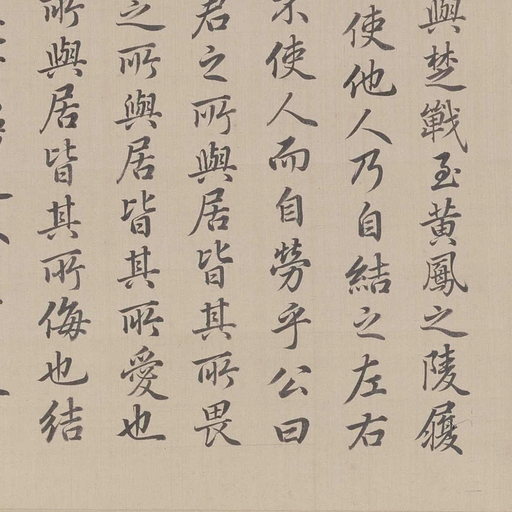 與楚戰至黃鳳之陵履
使他人乃自結之左右
不使人而自勞乎公曰
君之所與居皆其所畏
之所與居皆其所愛也
所與居皆其所侮也結